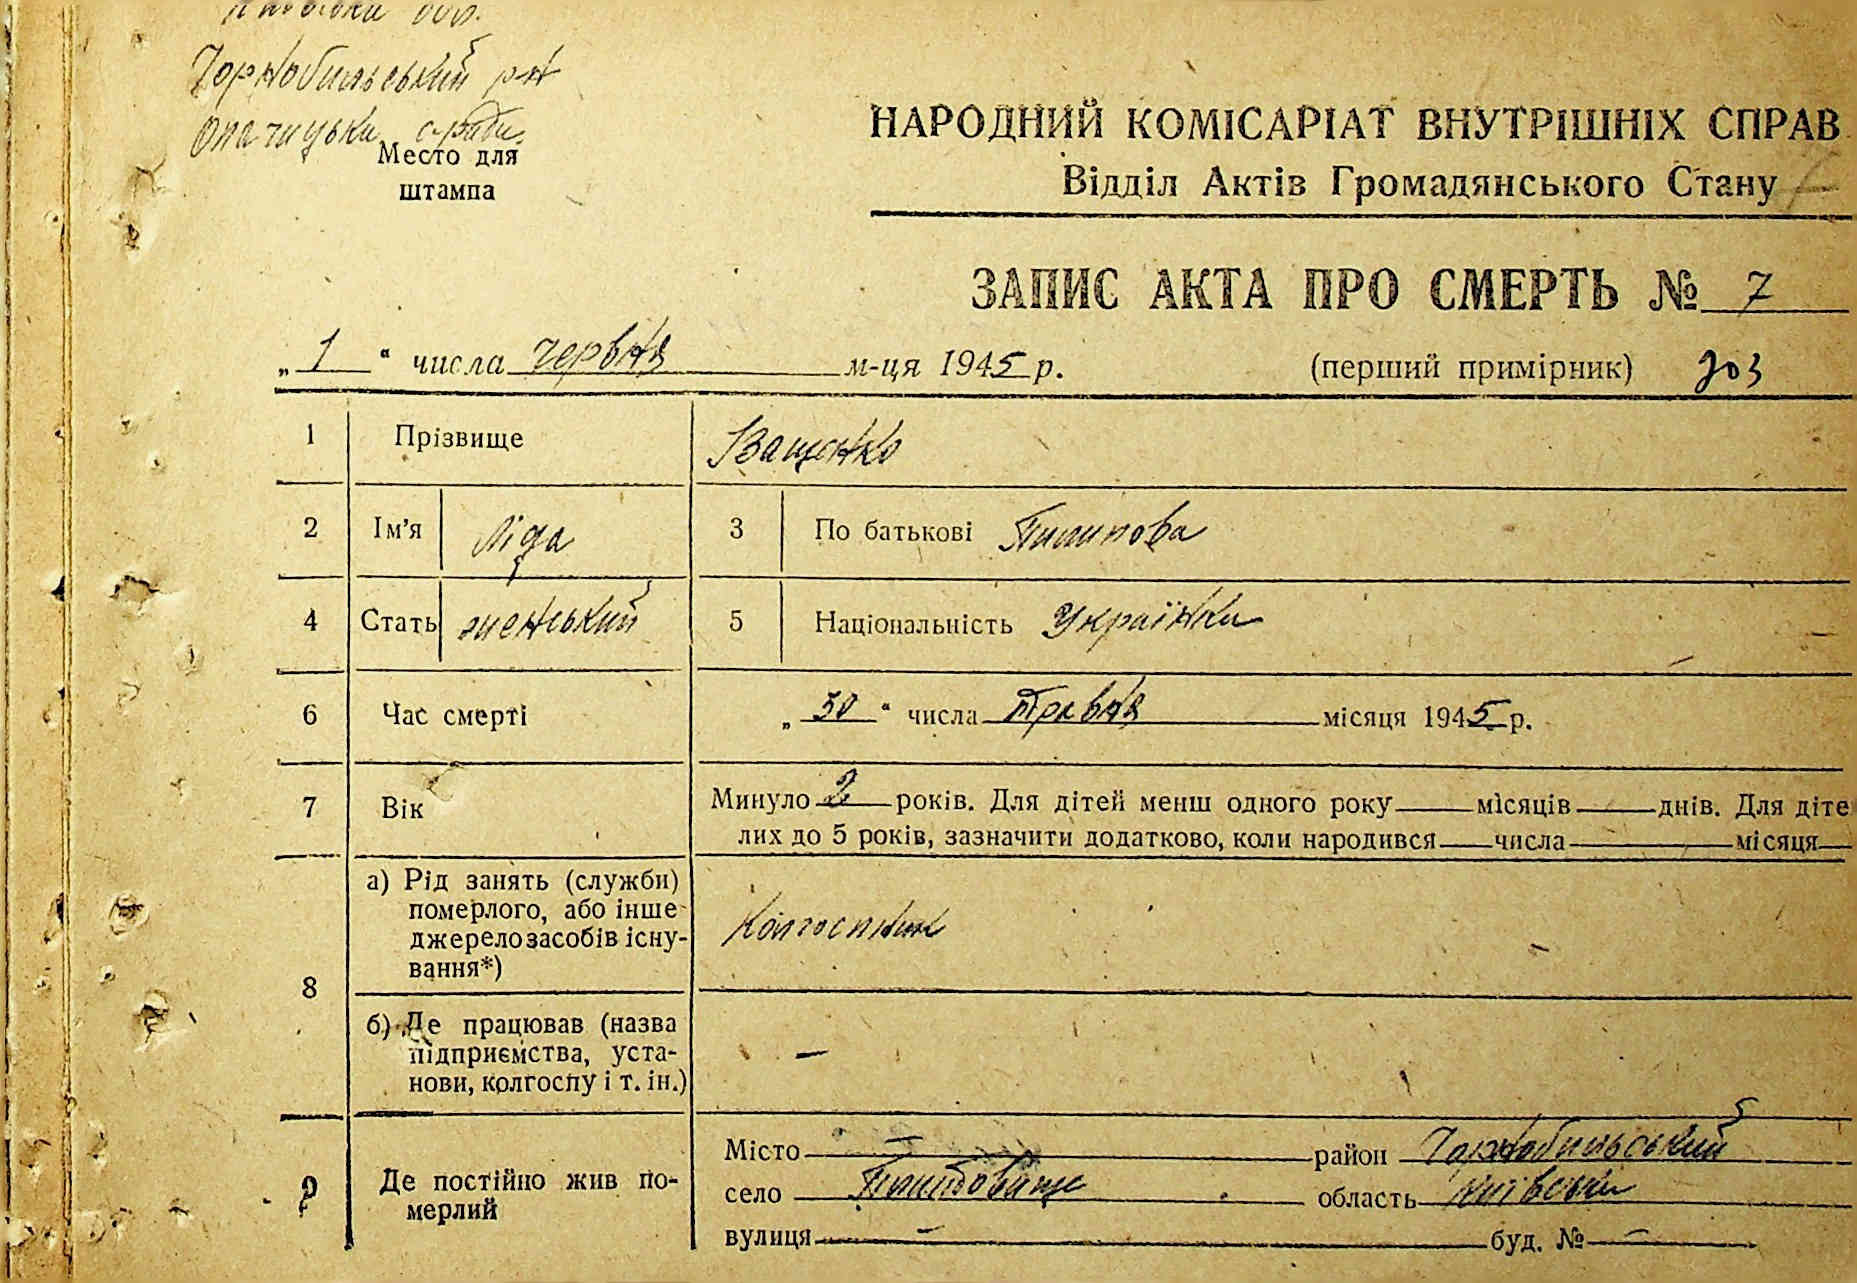 Київська обл.
Чорнобильський р-н
Опачицька с-рада
Место для
штампа
НАРОДНИЙ КОМІСАРІАТ ВНУТРІШНІХ СПРАВ
Відділ Актів Громадянського Стану
ЗАПИС АКТА ПРО СМЕРТЬ № 7
„1“ числа червня м-ця 1945 р. (перший примірник) 203
1 Прізвище Іващенко
2 Ім'я Ліда 3 По батькові Пилипова
4 Стать женський 5 Національність Українка
6 Час смерті „30“ числа травня місяця 1945 р.
7 Вік Минуло 2 років. Для дітей менш одного року — місяців — днів. Для діте
лих до 5 років, зазначити додатково, коли народився — числа — місяця —
8 а) Рід занять (служби)
померлого, або інше
джерело засобів існу-
вання*) Колгоспник
б) Де працював (назва
підприємства, уста-
нови, колгоспу і т. ін.) —
9 Де постійно жив по-
мерлий
Місто — район Чорнобильський
село область Київська
вулиця — буд. № —